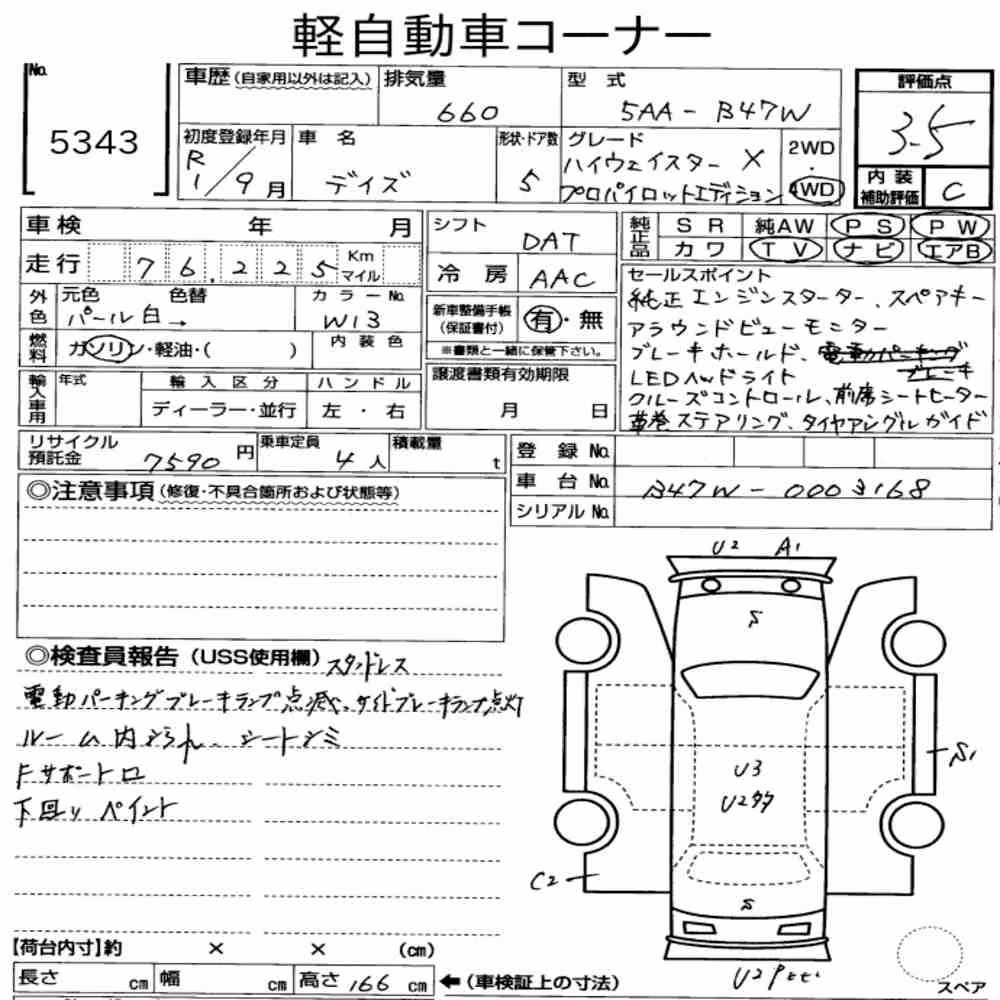 軽自動車コーナー
No.
5343
車歴(自家用以外は記入)
排気量
660
型式
5AA-B47W
評価点
3.5
初度登録年月
R1/9月
車名
デイズ
形状・ドア数
5
グレード
ハイウェイスターX
プロパイロットエディション
2WD
・
4WD
内装
補助評価
C
車検 年 月
走行 76,225 Km
マイル
外色
元色 色替
パール白→
カラーNo.
W13
燃料
ガソリン・軽油・( )
内装色
輸入車用
年式
輸入区分
ディーラー・並行
ハンドル
左・右
シフト
DAT
冷房
AAC
新車整備手帳
(保証書付)
有・無
※書類と一緒に保管下さい。
譲渡書類有効期限
月 日
純正品
SR 純AW PS PW
カワ TV ナビ エアB
セールスポイント
純正エンジンスターター、スペアキー
アラウンドビューモニター
ブレーキホールド、電動パーキング
ブレーキ
LEDヘッドライト
クルーズコントロール、前席シートヒーター
革巻ステアリング、タイヤアングルガイド
リサイクル
預託金
7590円
乗車定員
4人
積載量
t
登録No.
車台No.
B47W-0003168
シリアルNo.
◎注意事項(修復・不具合箇所および状態等)
◎検査員報告(USS使用欄)
電動パーキングブレーキランプ点滅、サイドブレーキランプ点灯
シートシミ
Fサポートロ
下回り ペイント
U2 A1
S
S1
U3
U2多
C2
S
U2
スペア
【荷台内寸】約 × × (cm)
長さ cm 幅 cm 高さ 166 cm
←(車検証上の寸法)